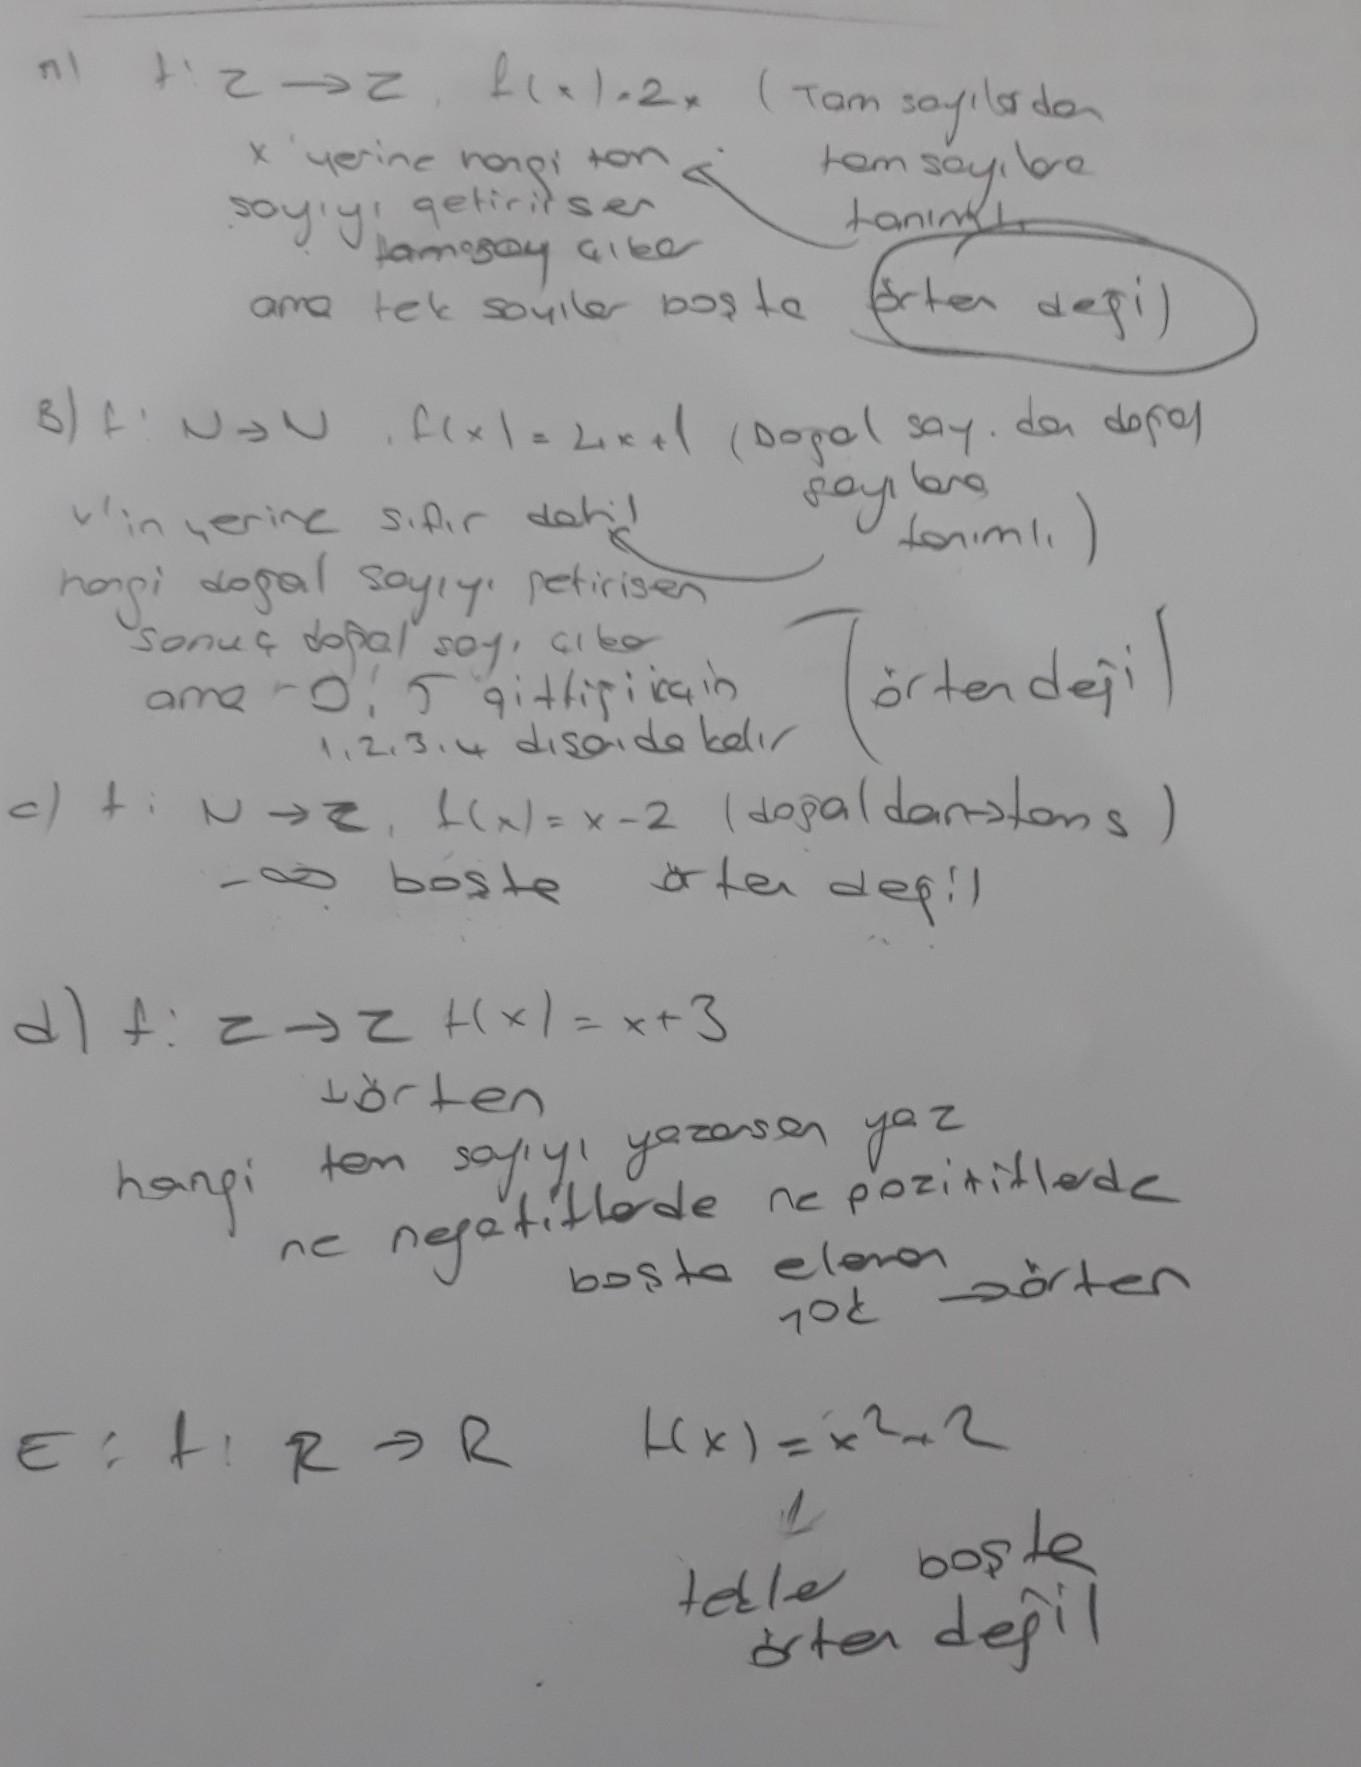 a) f: Z → Z, f(x) = 2x (Tam sayılardan
x yerine hangi tam tam sayılara
sayıyı getirirsen tanımlı
tamsay çıkar
ama tek sayılar boşta örten değil
B) f: N → N, f(x) = 4x+1 (Doğal say. dan doğal
sayılara
x'in yerine sıfır dahil tanımlı)
hangi doğal sayıyı getirisen
sonuç doğal sayı çıkar örten değil
ama 0, 5 gittiği için
1,2,3,4 dışarıda kalır
c) f: N → Z, f(x) = x-2 (doğaldan→tams)
-∞ boşta örten değil
d) f: Z → Z f(x) = x+3
örten
hangi tam sayıyı yazarsan yaz
ne negatiflerde ne pozitiflerde
boşta eleman
yok → örten
E: f: R → R f(x) = x²+2
↓
tekler boşta
örten değil